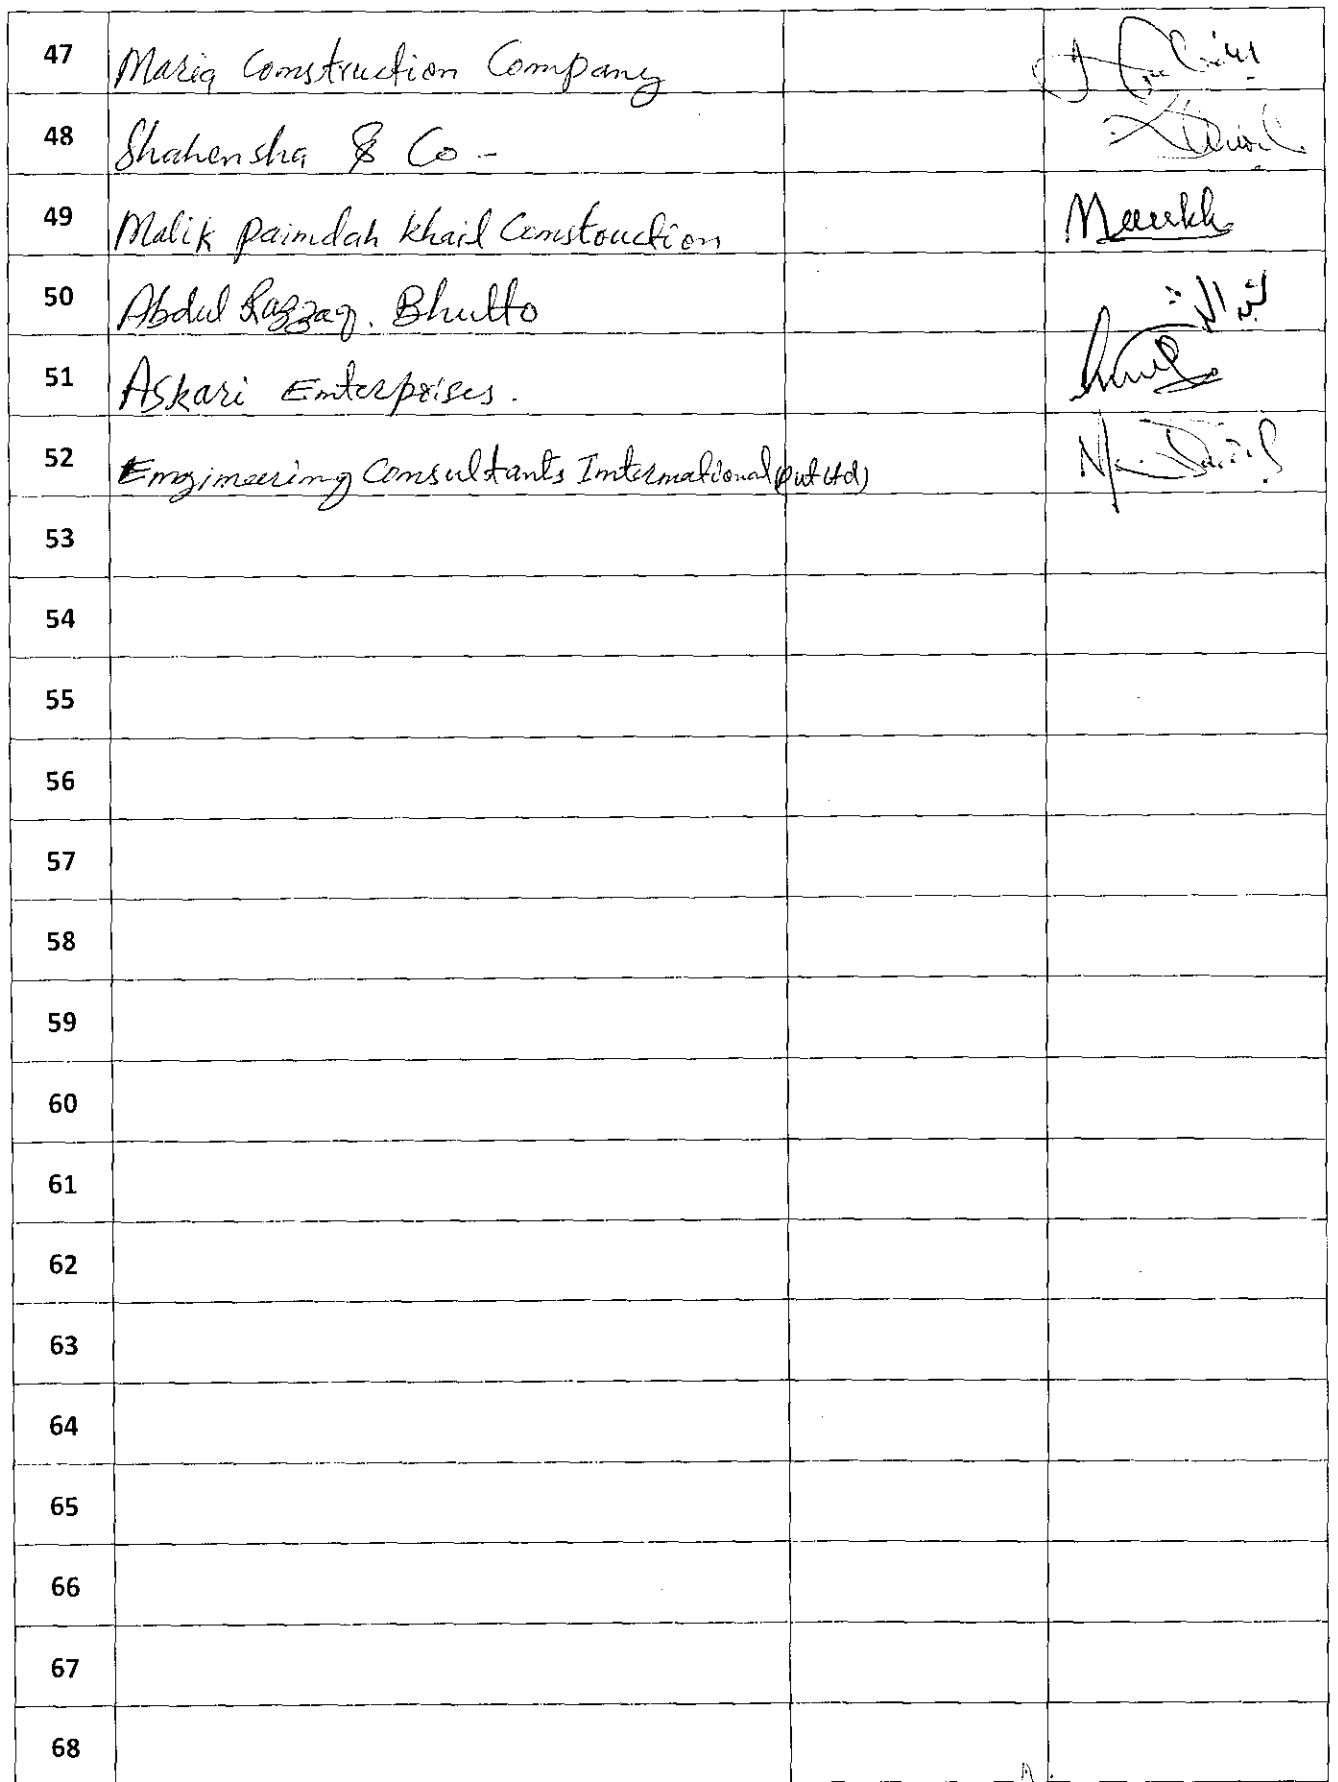 47 Maria Construction Company
48 Shahensha & Co -
49 Malik paindah khail Construction
50 Abdul Razzaq. Bhutto
51 Askari Enterprises.
52 Engineering Consultants International (Pvt Ltd)
53
54
55
56
57
58
59
60
61
62
63
64
65
66
67
68